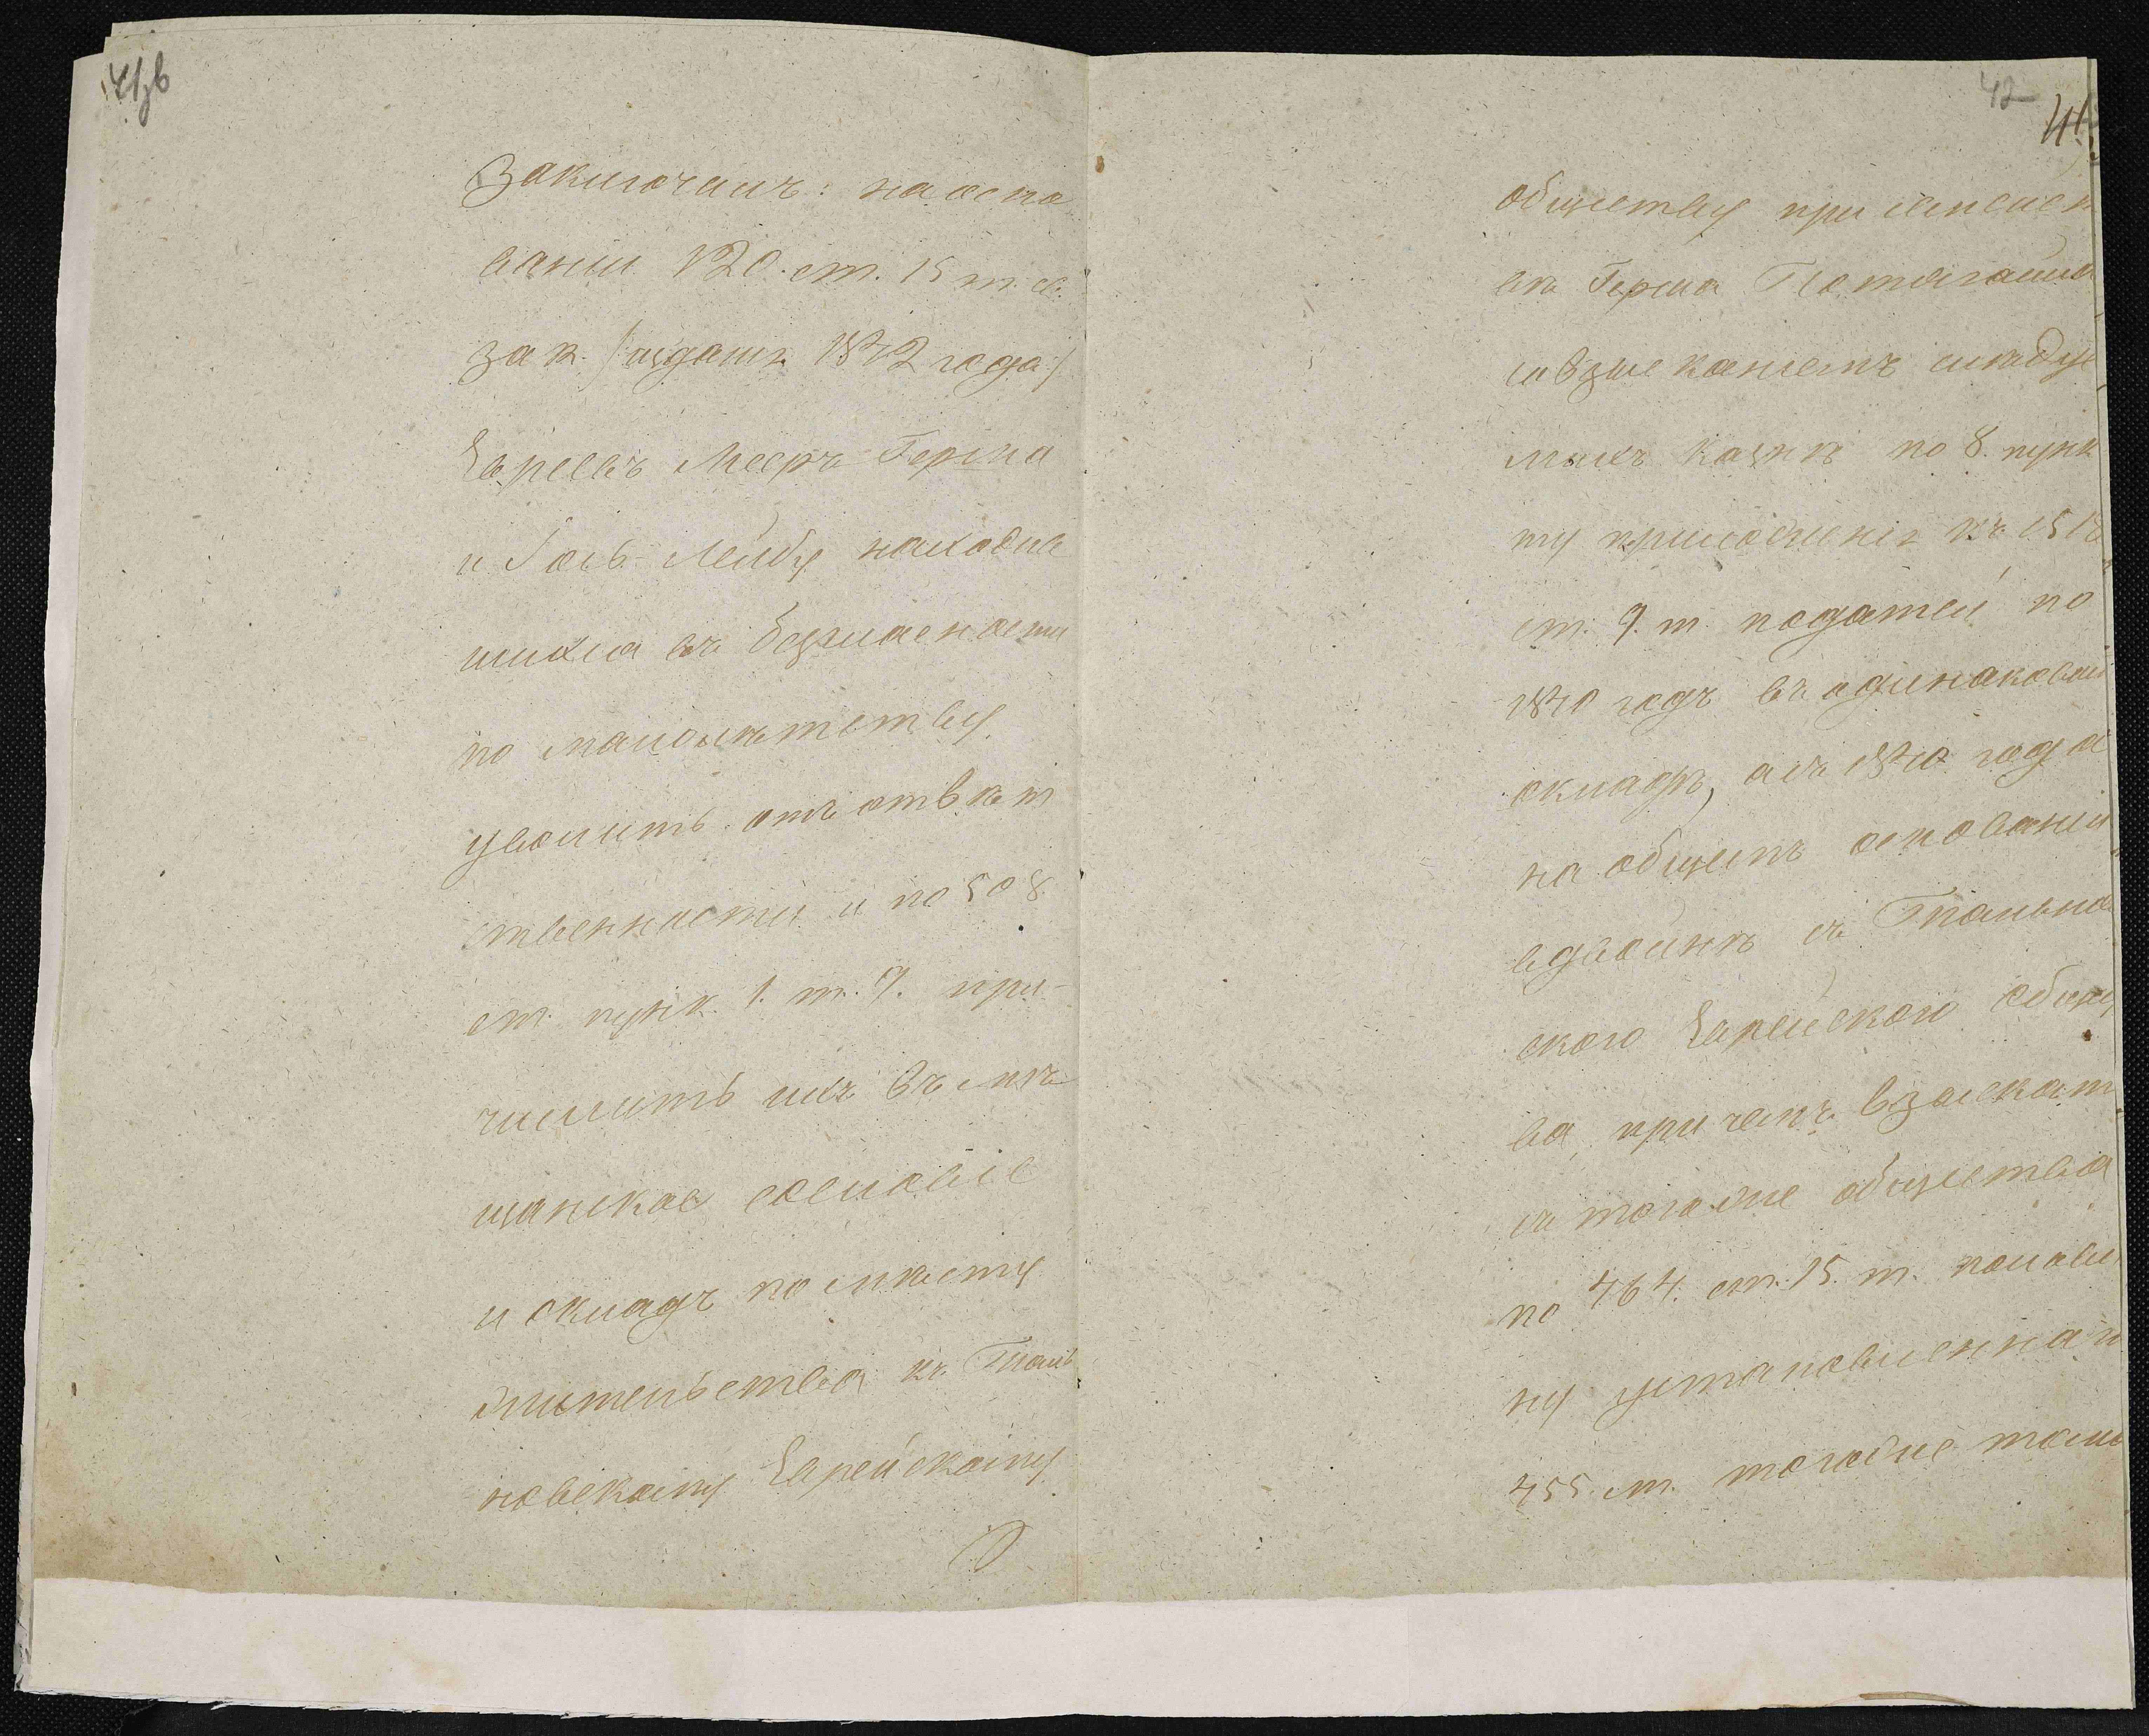 41зв
заключилъ: на осно
ваніи 120. ст. 15 т. св.
зак. /издан. 1842 года/
Евреевъ Меера Герша
и Іось-Лейбу находив
шихся въ безгласности
по малолѣтству,
уволить отъ отвѣт
ственности и по 508
ст. пунк. 1. т. 9. при-
числить ихъ въ мѣ
щанское сословіе
и окладъ по мѣсту
жительства къ Таль
новскому Еврейскому
42
41
обществу при семейст
вѣ Герша
со взысканіемъ слѣдуе
мыхъ казнѣ по 8. пунк
ту приложенія къ 1518
ст. 9. т. податей по
1840 годъ въ одинаковом
окладѣ, а съ 1840 года
на общемъ основаніи
вдвойнѣ съ Тальнов
ского Еврейского общес
ва, при чемъ взыскат
съ того же общества
по 464. ст. 15. т. полови
ну установленнаго
455. ст. того же тома